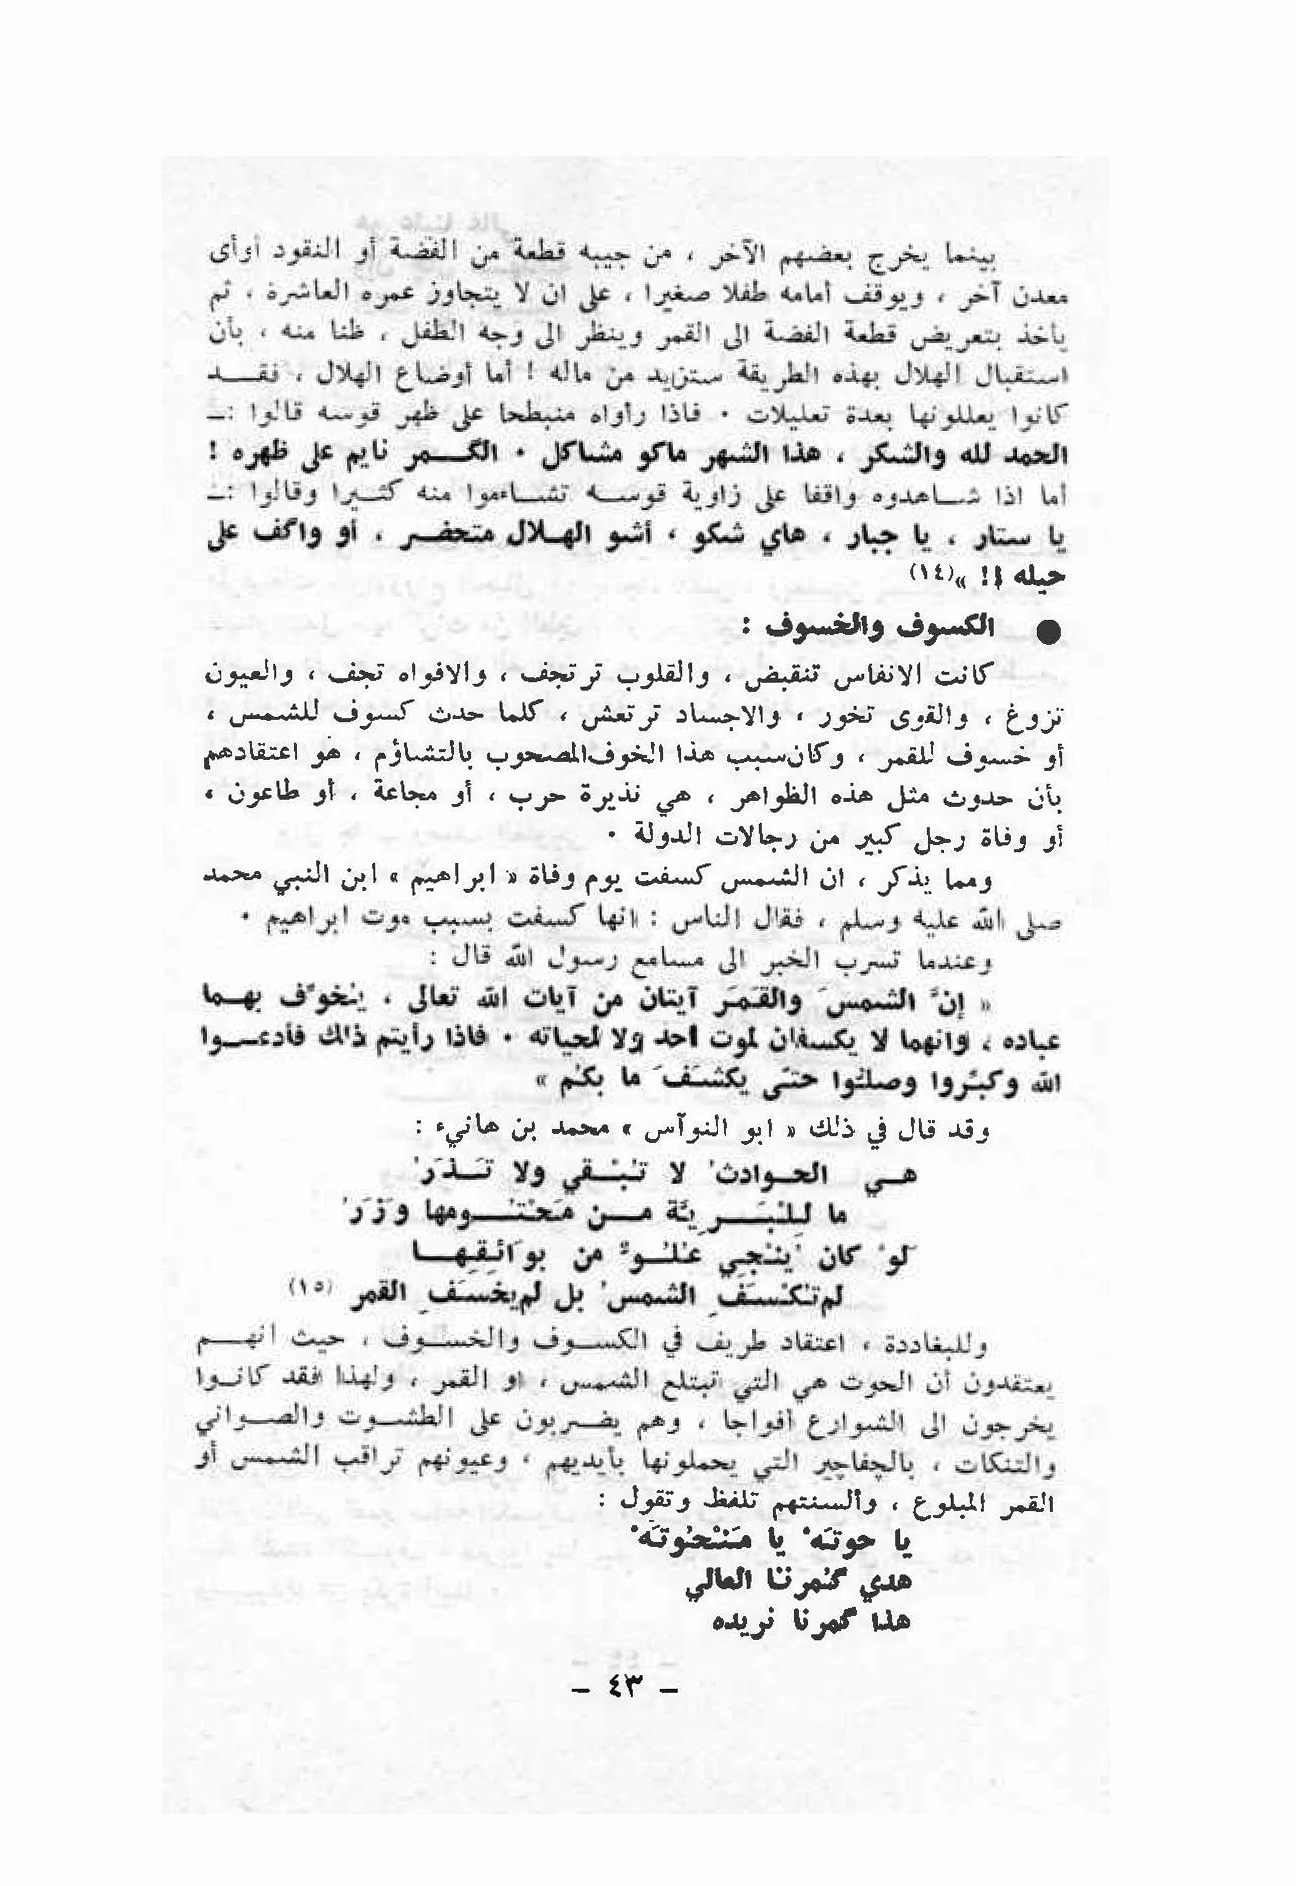 بينما يخرج بعضهم الآخر ، من جيبه قطعة من الفضة أو النقود أو أى
معدن آخر ، ويوقف أمامه طفلا صغيرا ، على ان لا يتجاوز عمره العاشرة ، ثم
يأخذ بتعريض قطعة الفضة الى القمر وينظر الى وجه الطفل ، ظنا منه ، بأن
استقبال الهلال بهذه الطريقة ستزيد من ماله ! أما أوضاع الهلال ، فقـــد
كانوا يعللونها بعدة تعليلات ٠ فاذا رأواه منبطحا على ظهر قوسه قالوا :ـ
الحمد لله والشكر ، هذا الشهر ماكو مشاكل ٠ الگـــمر نايم على ظهره !
أما اذا شـــاهدوه واقفا على زاوية قوســـه تشـــاءموا منه كثـــيرا وقالوا :ـ
يا ستار ، يا جبار ، هاي شكو ، أشو الهـلال متحضـر ، أو واگف على
حيله !! »(١٤)
● الكسوف والخسوف :
كانت الانفاس تنقبض ، والقلوب ترتجف ، والافواه تجف ، والعيون
تزوغ ، والقوى تخور ، والاجساد ترتعش ، كلما حدث كسوف للشمس ،
أو خسوف للقمر ، وكان سبب هذا الخوف المصحوب بالتشاؤم ، هو اعتقادهم
بأن حدوث مثل هذه الظواهر ، هي نذيرة حرب ، أو مجاعة ، أو طاعون ،
أو وفاة رجل كبير من رجالات الدولة ٠
ومما يذكر ، ان الشمس كسفت يوم وفاة « ابراهيم » ابن النبي محمد
صلى الله عليه وسلم ، فقال الناس : انها كسفت بسبب موت ابراهيم ٠
وعندما تسرب الخبر الى مسامع رسول الله قال :
« إنَّ الشمسَ والقمَرَ آيتان من آيات الله تعالى ، يُخوِّف بهـــما
عباده ، وانهما لا يكسفان لموت أحد ولا لحياته ٠ فاذا رأيتم ذلك فأدعـــوا
الله وكبِّروا وصلُّوا حتى يكشفَ ما بكم »
وقد قال في ذلك « ابو النوآس » محمد بن هانيء :
هـــي الحـــوادثُ لا تُبْـــقي ولا تَـــذَرُ
ما لِلْبَـــرِيَّة مـــن مَحْتُـــومها وَزَرُ
لَوْ كان يُنْجِي عُلُـــوٌ من بوَائِقِهـــا
لم تُكْسَفِ الشمسُ بل لم يخسَفِ القمر (١٥)
وللبغاددة ، اعتقاد طريف في الكســـوف والخســـوف ، حيث انهـــم
يعتقدون أن الحوت هي التي تبتلع الشمس ، او القمر ، ولهذا فقد كانـــوا
يخرجون الى الشوارع أفواجا ، وهم يضـــربون على الطشـــوت والصـــواني
والتنكات ، بالچفاچير التي يحملونها بأيديهم ، وعيونهم تراقب الشمس أو
القمر المبلوع ، وألسنتهم تلفظ وتقول :
يا حوتَهْ يا مَنْحُوتَهْ
هدي گمرنا العالي
هذا گمرنا نريده
– ٤٣ –